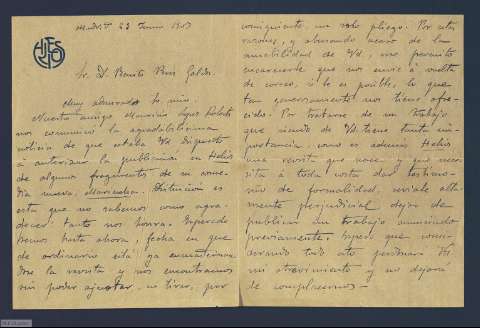 HELIOS
Madrid 23 Junio 1903
Sr. D. Benito Pérez Galdós.
Muy admirado Sr. mío:
Nuestro amigo Mauricio López Roberts
nos comunicó la agradabilísima
noticia de que estaba Vd. dispuesto
á autorizar la publicación en Helios
de algún fragmento de su come-
dia nueva, Mariucha. Distinción es
esta que no sabemos como agra-
decer: tanto nos honra. Esperado
hemos hasta ahora, fecha en que
de ordinario está ya encuadernán-
dose la revista y nos encontramos
sin poder ajustar, ni tirar, por
consiguiente, un solo pliego. Por estas
razones, y abusando acaso de la
amabilidad de Vd., me permito
encarecerle que nos envíe á vuelta
de correo, si le es posible, lo que
tan generosamente nos tiene ofre-
cido. Por tratarse de un trabajo
que siendo de Vd. tiene tanta im-
portancia, como es además Helios
una revista que nace y que nece-
sita á toda costa dar testimo-
nio de formalidad, seríale alta-
mente perjudicial dejar de
publicar un trabajo anunciado
previamente. Espero que consi-
derando todo esto perdonará Vd.
mi atrevimiento y no dejará
de complacernos –